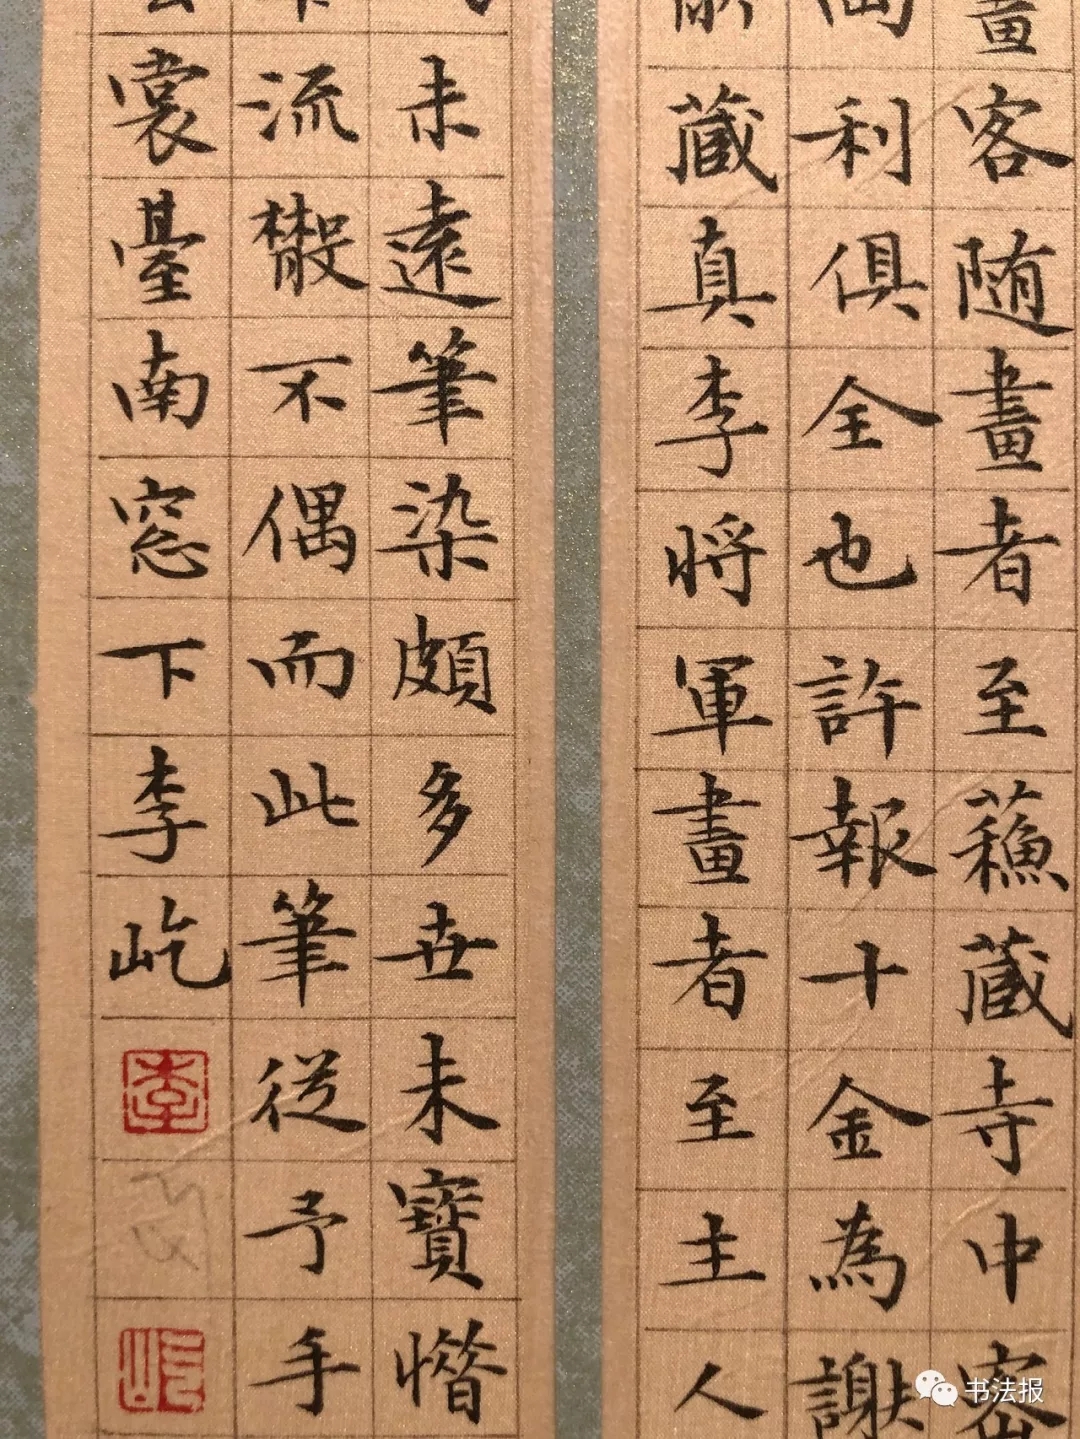 畫客随畫者至蘓蔵寺中密
利俱全也許報十金為謝
蔵真李将軍畫者至主人
未遠筆染頗多世未寶惜
流㪚不偶而此筆従予手
裳臺南窓下李屹
李
书法报